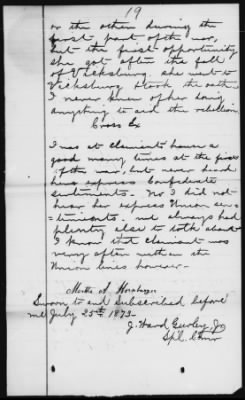 19
or the other during the
first part of the war,
but the first opportunity
she got after the fall
of Vicksburg she went to
Vicksburg & took the oath
I never knew of her doing
anything to aid the rebellion
Cross Ex
I was at claimants house a
good many times at the first
of the war, but never heard
her express Confederate
sentiments. No I did not
hear her express Union sen=
=timents. We always had
plenty else to talk about
I know that claimant was
very often within the
Union lines however—
Martha A.
Sworn to and Subscribed before
me July 25th 1873—
J. Ward Gurley, Jr
Sp'l. Comr